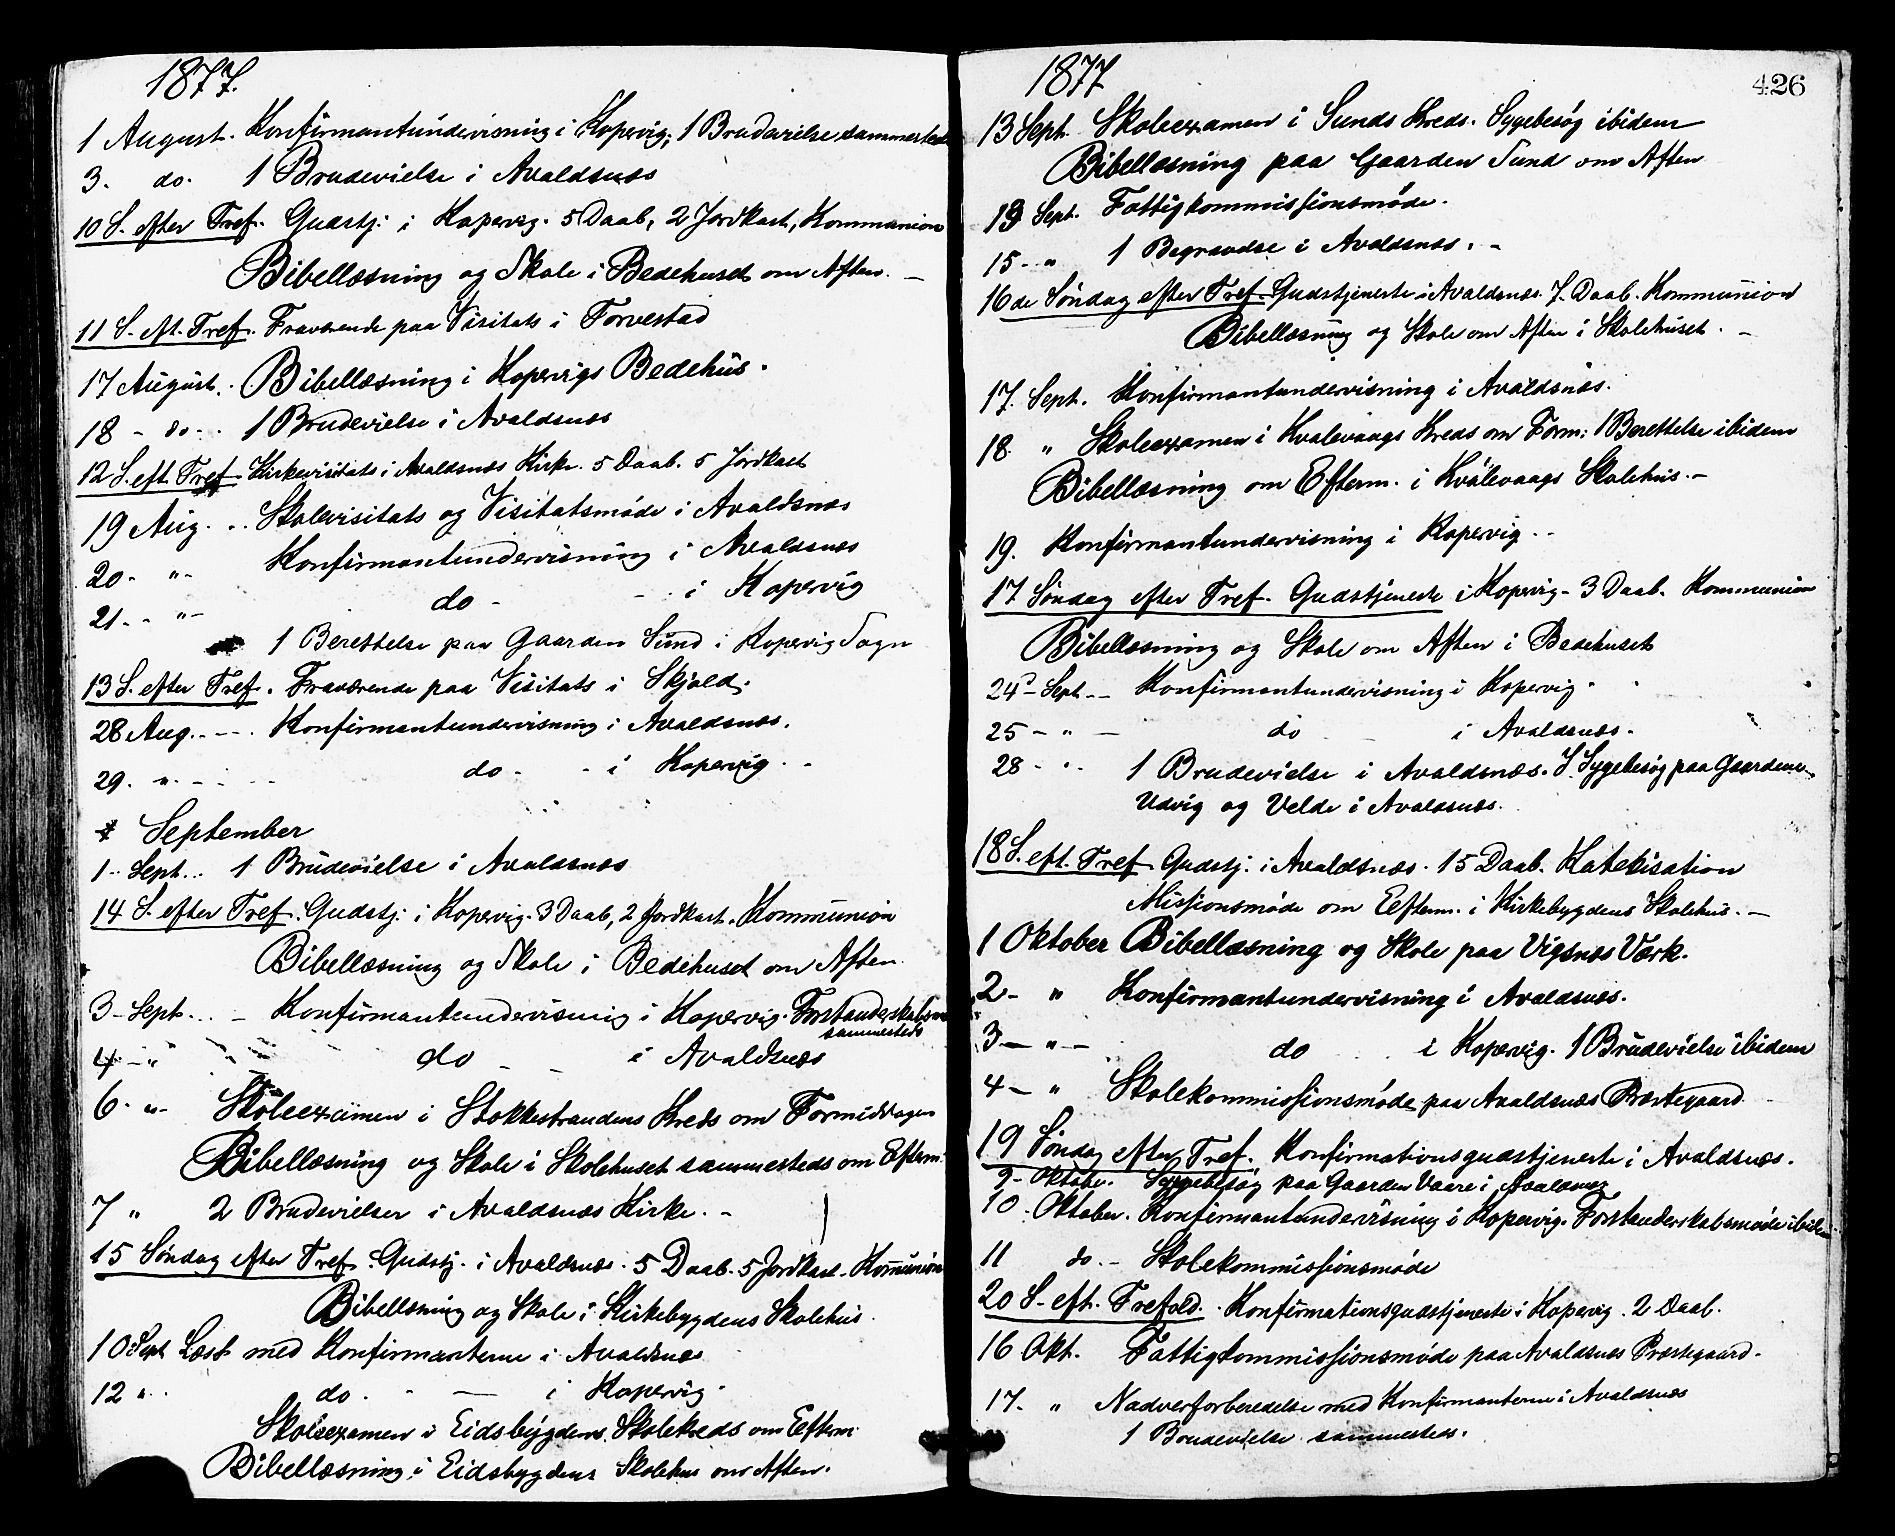 1877.
1 August. Konfirmantundervisning i Kopervig, 1 Brudevielse sammesteds
3. do. 1 Brudevielse i Avaldsnæs
10 S. efter Tref. Gudstj. i Kopervig. 5 Daab, 2 Jordkast, Kommunion
Bibellæsning og Skole i Bedehuset om Aften. —
11 S. eft. Tref. Fraværende paa Visitats i Torvestad
17 August. Bibellæsning i Kopervigs Bedehus.
18 - do - . 1 Brudevielse i Avaldsnæs
12 S. eft. Tref. Kirkevisitats i Avaldsnæs Kirke. 5 Daab. 5 Jordkast
19 Aug. .. Skolevisitats og Visitatsmøde i Avaldsnæs
20 - " - Konfirmantundervisning i Avaldsnæs
21 - - " - do - - i Kopervig
1 Berettelse paa Gaarden Sund i Kopervig Sogn
13 S. efter Tref. Fraværende paa Visitats i Skjold.
28 Aug. - - - . Konfirmantundervisning i Avaldsnæs.
29. " - - - do - - i Kopervig - -
September
1 - Sept... 1 Brudevielse i Avaldsnæs
14 S. efter Tref. Gudstj. i Kopervig. 3 Daab, 2 Jordkast. Kommunion
Bibellæsning og Skole i Bedehuset om Aften.
3 - Sept... - Konfirmantundervisning i Kopervig. Forstanderskabsm
sammesteds
4 - " do - - i Avaldsnæs
6 - " - Skoleexamen i Stokkestrandens Kreds om Formiddagen
Bibellæsning og Skole i Skolehuset sammesteds om Efterm.
7 " 2 Brudevielser i Avaldsnæs Kirke. -
15 Søndag efter Tref. Gudstj. i Avaldsnæs. 5 Daab. 5 Jordkast. Kommunion
Bibellæsning og Skole i Kirkebygdens Skolehus.
10 Sept Læst med Konfirmanterne i Avaldsnæs
12 " . do. - — i Kopervig.
Skoleexamen i Eidsbygdens Skolekreds om Efterm
Bibellæsning i Eidsbygdens Skolehus om Aften.
1877
426
13 Sept. Skoleexamen i Sunds Kreds. Sygebesøg ibidem
Bibellæsning paa Gaarden Sund om Aften
13 Sept. Fattigkommissionsmøde.
15 - " 1 Begravelse i Avaldsnæs. -
16de Søndag efter Tref. Gudstjeneste i Avaldsnæs. 7 Daab. Kommunion
Bibellæsning og Skole om Aften i Skolehuset. -
17. Sept. Konfirmantundervisning i Avaldsnæs.
18. " Skoleexamen i Kvalevaags Kreds om Form: 1 Berettelse ibidem
Bibellæsning om Efterm. i Kvalevaags Skolehus. -
19. Konfirmantundervisning i Kopervig - -
17 Søndag efter Tref. Gudstjeneste i Kopervig - 3 Daab. Kommunion
Bibellæsning og Skole om Aften i Bedehuset
24 - Sept - - Konfirmantundervisning i Kopervig -
25 - " - do - i Avaldsnæs.
28 - " . 1 Brudevielse i Avaldsnæs. Sygebesøg paa Gaardene
Udvig og Velde i Avaldsnæs.
18 S. eft. Tref. Gudstj. i Avaldsnæs. 15 Daab. Katekisation
Missionsmøde om Efterm. i Kirkebygdens Skolehus. -
1 Oktober Bibellæsning og Skole paa Vigsnæs Værk.
2 - " Konfirmantundervisning i Avaldsnæs.
3 - " - do i Kopervig. 1 Brudevielse ibidem
4 - " Skolekommissionsmøde paa Avaldsnæs Præstegaard.
19 Søndag efter Tref. Konfirmationsgudstjeneste i Avaldsnæs.
9 - Oktober. Sygebesøg paa Gaarden Vaare i Avaldsnæs
10 . Oktober. Konfirmantundervisning i Kopervig. Forstanderskabsmøde ibidem
11 do. - Skolekommissionsmøde
20 S. eft. Trefold. . Konfirmationsgudstjeneste i Kopervig. 2 Daab.
16 Okt. Fattigkommissionsmøde paa Avaldsnæs Præstegaard.
17. " Nadverforberedelse med Konfirmanterne i Avaldsnæs
1 Brudevielse sammesteds.